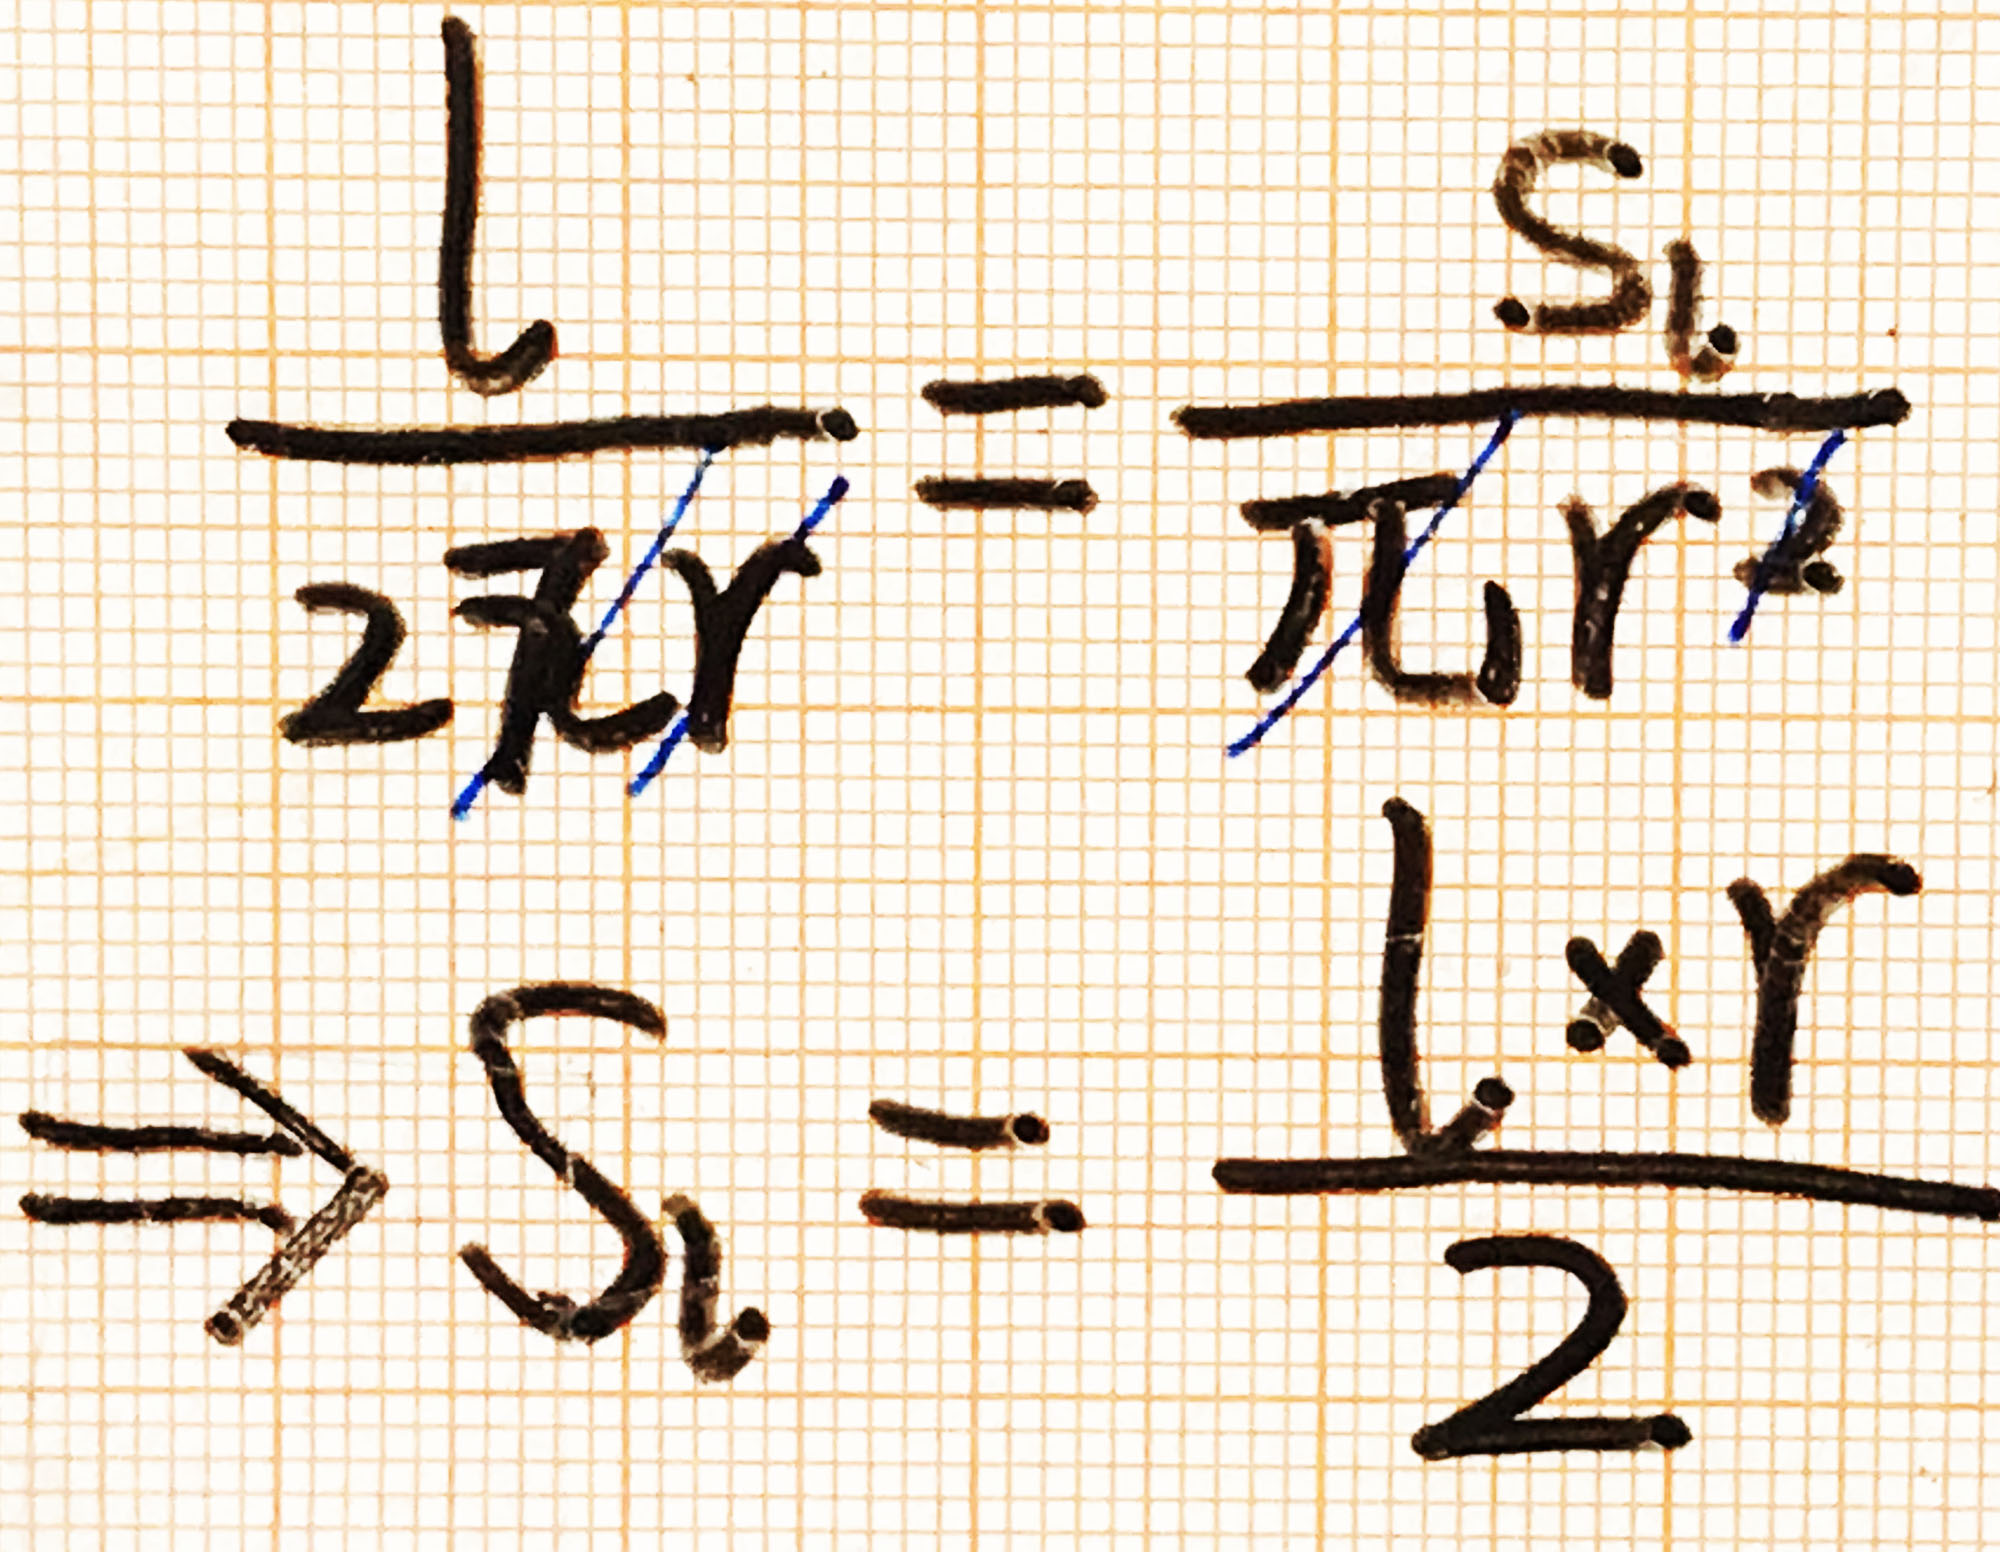 l/(2πr) = S_l/(πr²)
⇒ S_l = (l × r)/2